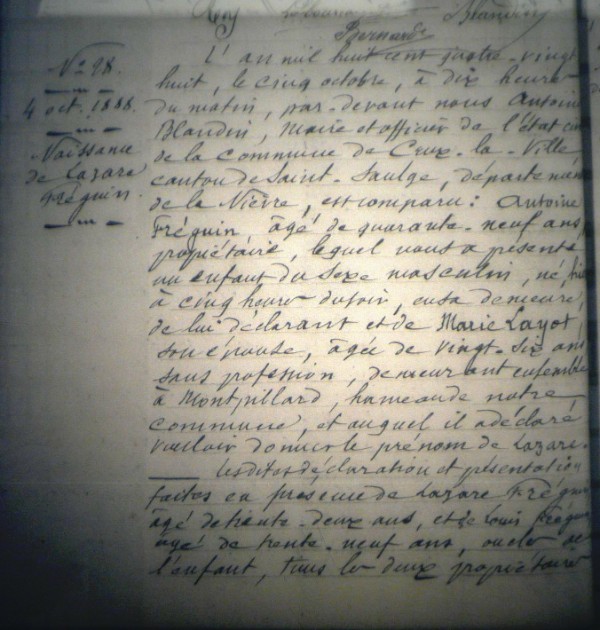 Blandin
Bernard
N° 98.
4 oct. 1888.
Naissance
de Lazare
Fréguin.
L'an mil huit cent quatre-vingt
huit, le cinq octobre, à dix heures
du matin, par-devant nous Antoine
Blandin, Maire et officier de l'état civ
de la commune de Crux-la-Ville
canton de Saint-Saulge, départemen
de la Nièvre, est comparu: Antoine
Fréguin âgé de quarante-neuf ans,
propriétaire, lequel nous a présenté
un enfant du sexe masculin, né, hie
à cinq heures du soir, en sa demeure,
de lui déclarant et de Marie Layot,
son épouse, âgée de vingt-six ans
sans profession, demeurant ensemble
à Montpillard, hameau de notre
commune, et auquel il a déclaré
vouloir donner le prénom de Lazare.
Lesdites déclaration et présentation
faites en présence de Lazare Frégu
âgé de trente-deux ans, et de Louis Frégu
âgé de trente-neuf ans, oncles de
l'enfant, tous les deux propriétaires